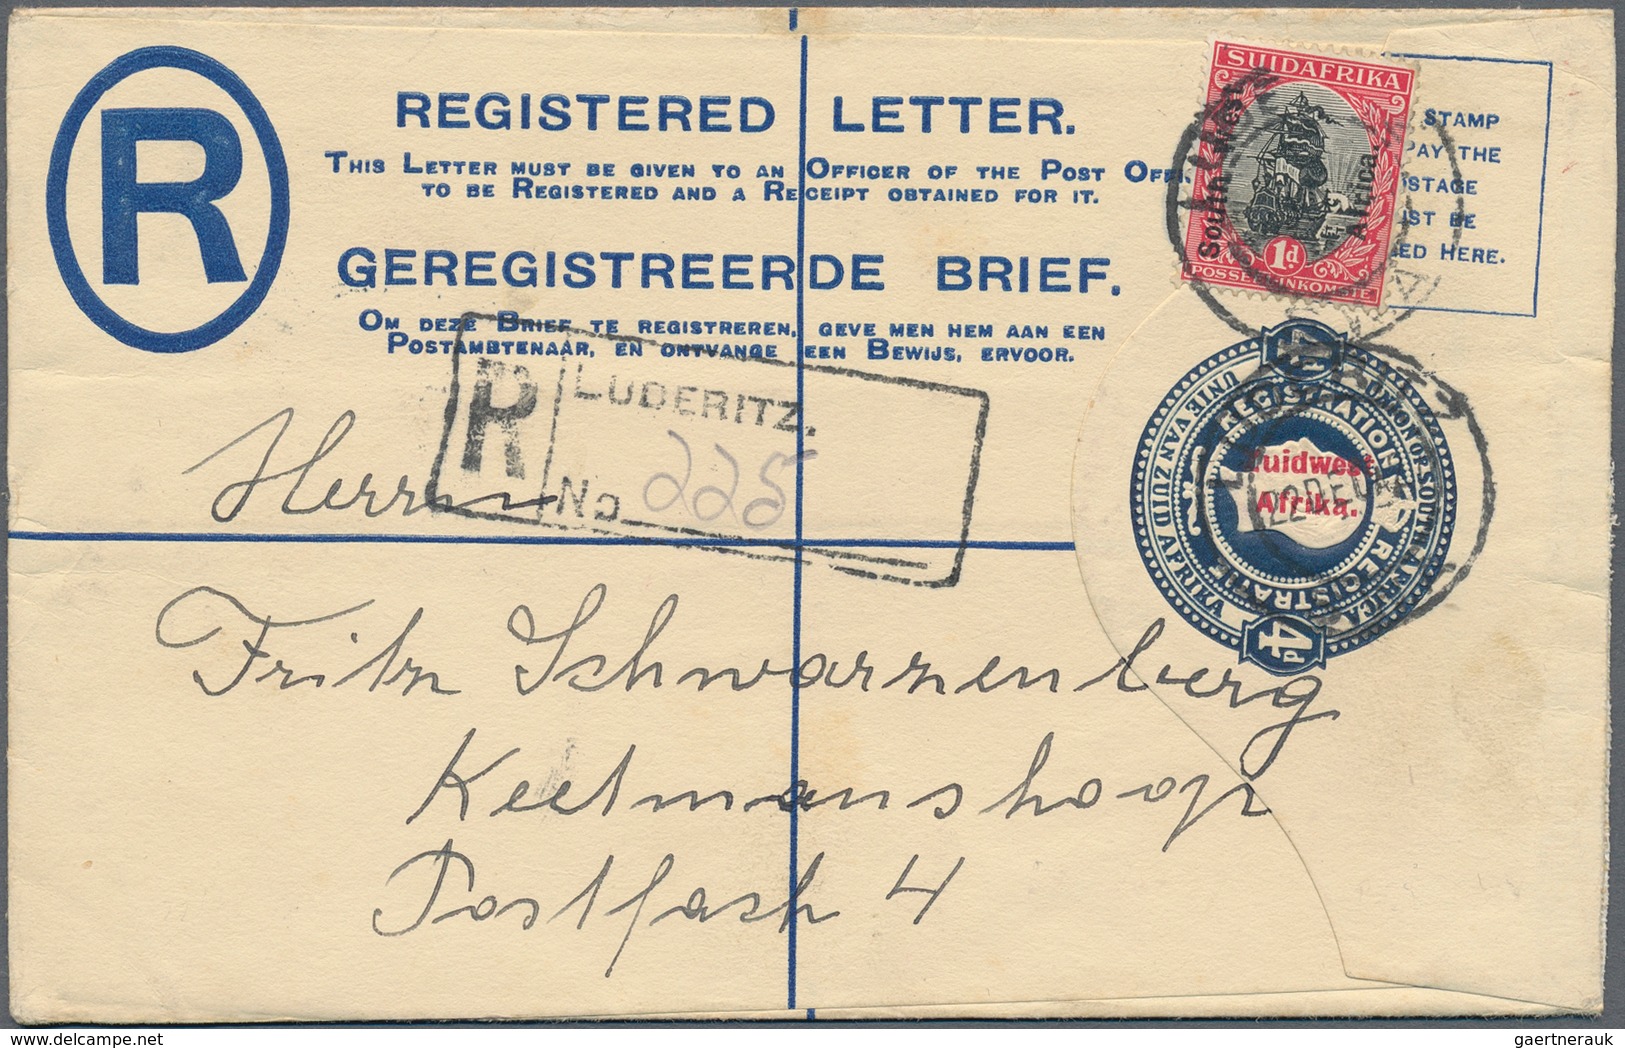 R
REGISTERED LETTER.
THIS LETTER MUST BE GIVEN TO AN OFFICER OF THE POST OFFI
TO BE REGISTERED AND A RECEIPT OBTAINED FOR IT.
GEREGISTREERDE BRIEF.
OM DEZE BRIEF TE REGISTREREN, GEVE MEN HEM AAN EEN
POSTAMBTENAAR, EN ONTVANGE EEN BEWIJS, ERVOOR.
STAMP
PAY THE
OSTAGE
UST BE
ED HERE.
SUIDAFRIKA
South West
Africa.
1d
POSSEEL INKOMSTE
R LUDERITZ.
No 225
UNIE VAN ZUID AFRIKA
UNION OF SOUTH AFRICA
REGISTRATION
REGISTRATIE
4d
Zuidwest
Afrika.
22 DE
Herrn
Fritz Schwarzenberg
Keetmanshoop
Postfach 4
gaertnerauk